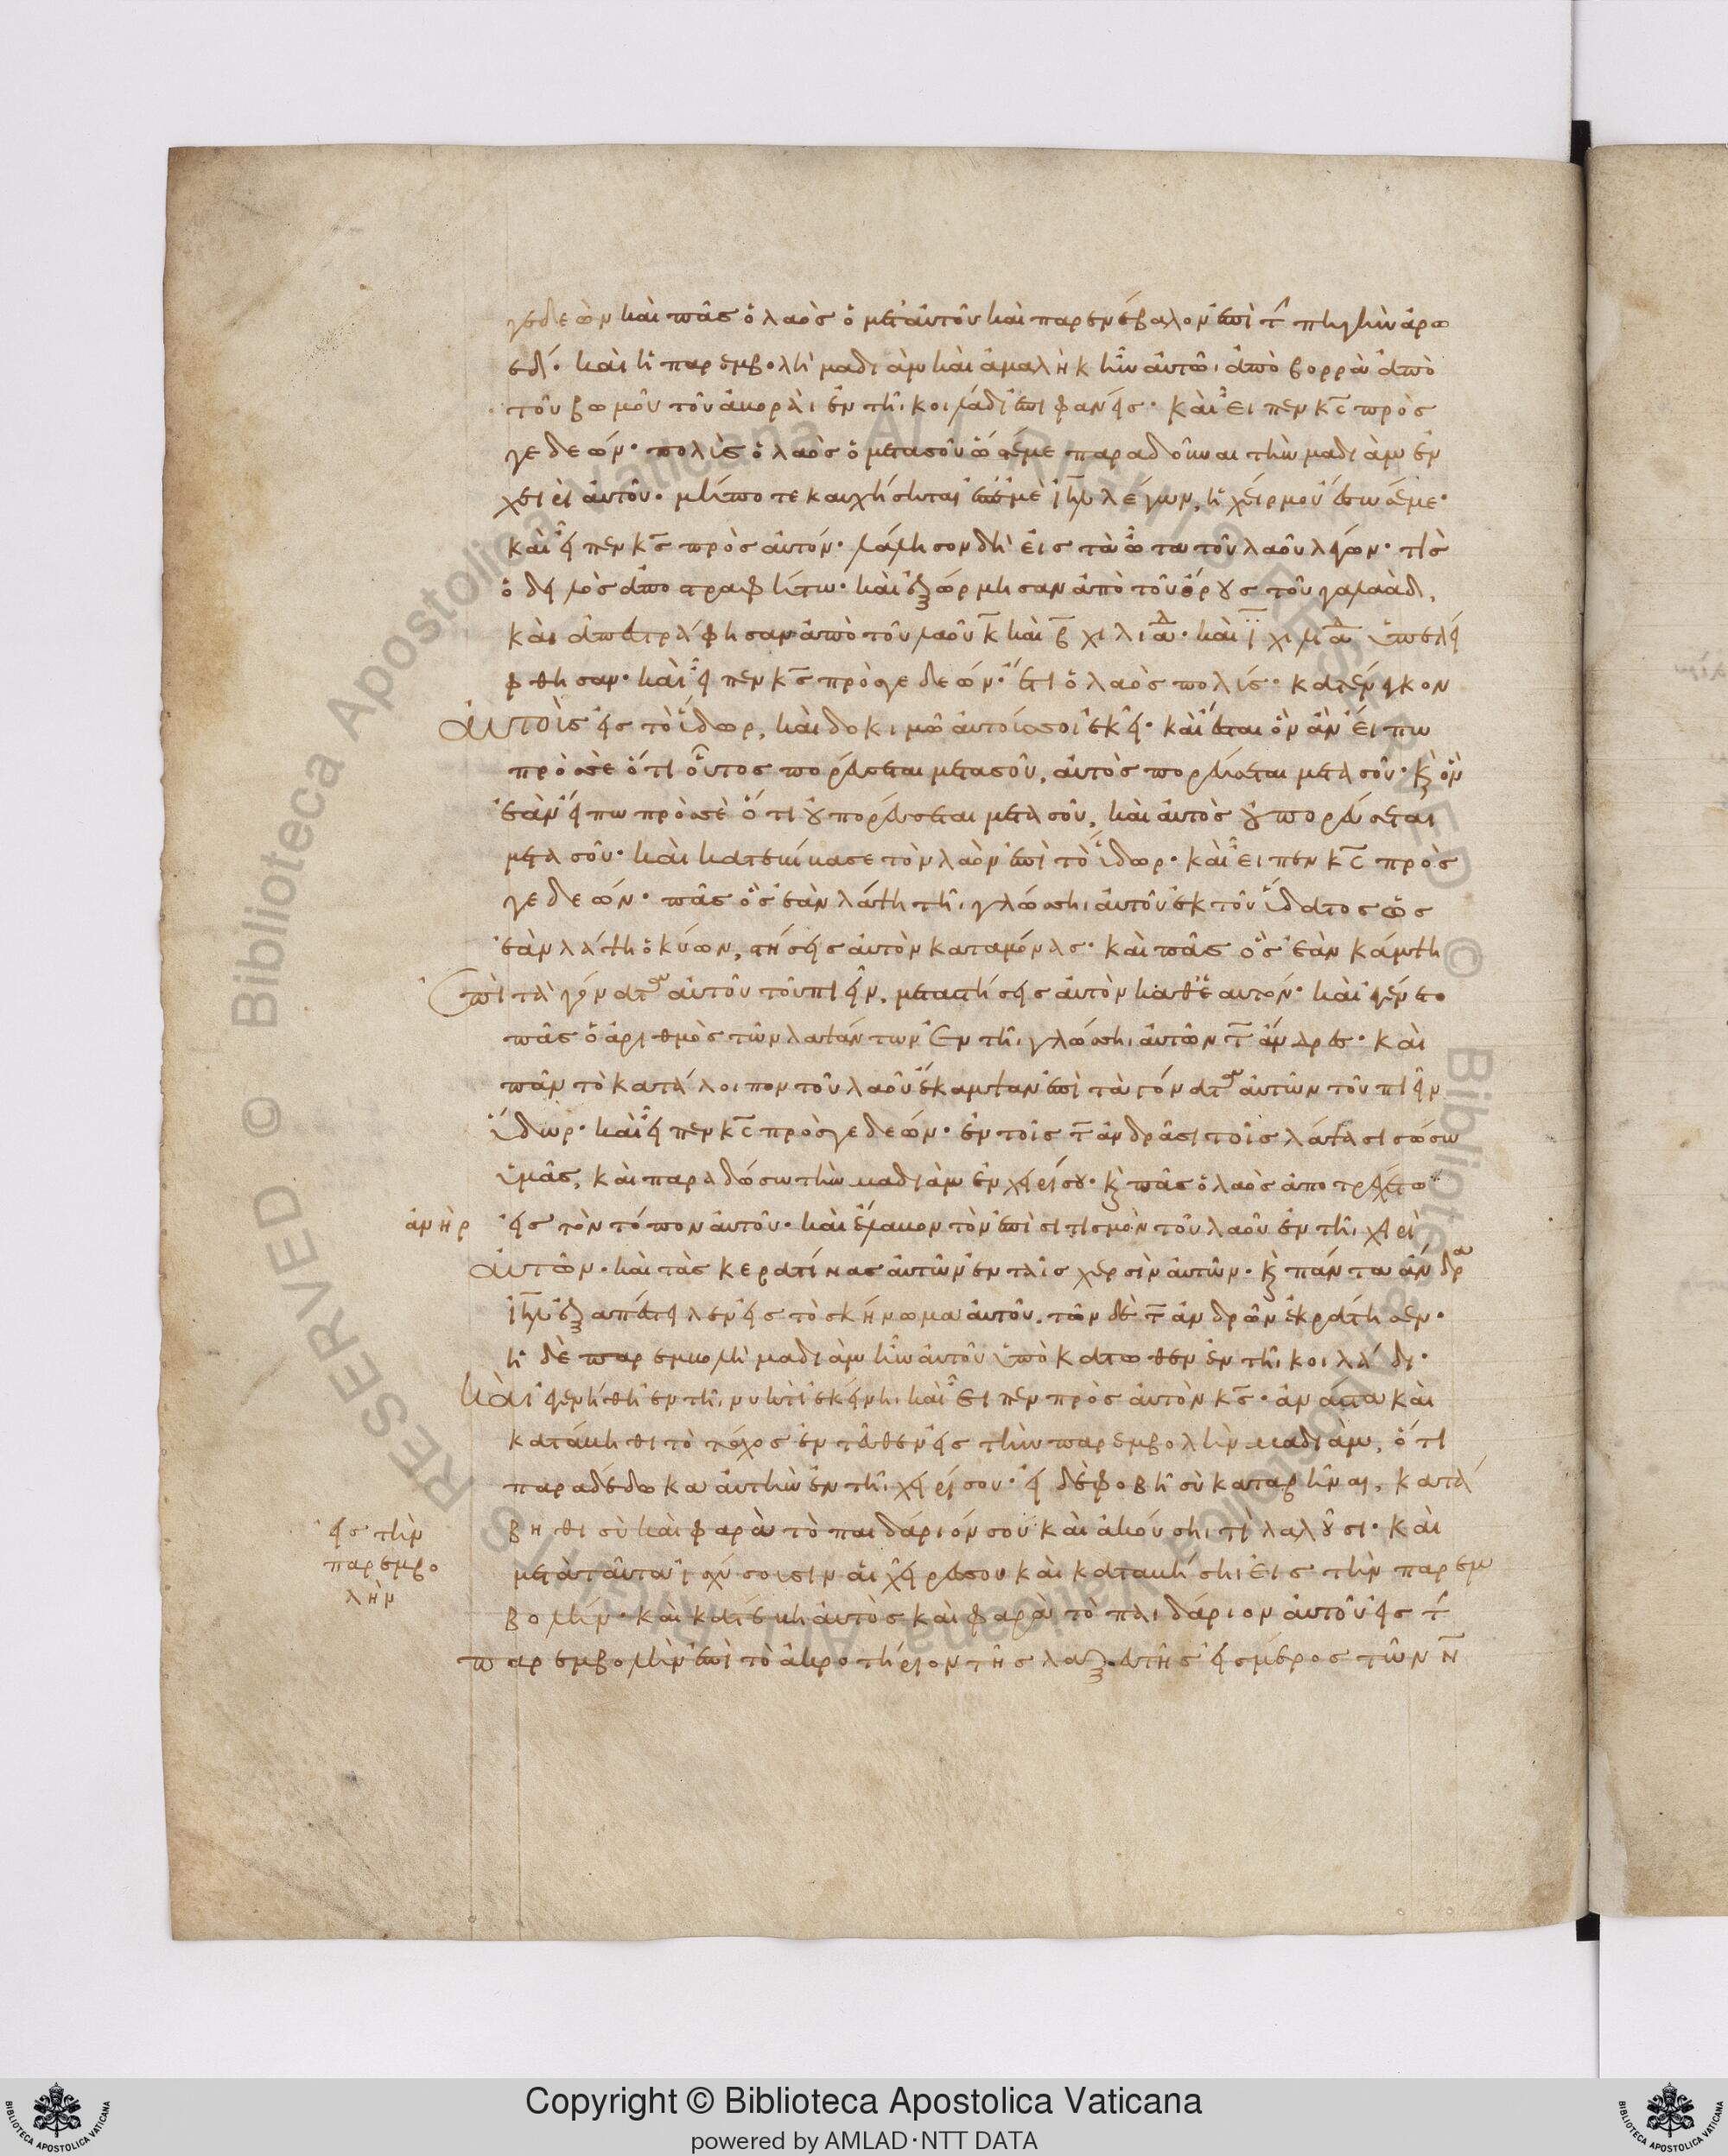 γεδεὼν καὶ πᾶς ὁ λαὸς ὁ μετ' αὐτοῦ καὶ παρενέβαλον ἐπὶ τ̀ πηγὴν ἀρω
εδ. καὶ ἡ παρεμβολὴ μαδιὰμ καὶ ἀμαλὴκ ἦν αὐτῶ ἀπὸ βορρᾶ ἀπὸ
τοῦ βωμοῦ τοῦ ἀμοραὶ ἐν τῆι κοιλάδι ἐπιφανῆς· καὶ εἶπεν κ̅ς̅ πρὸς
γεδεών· πολὺς ὁ λαὸς ὁ μετὰ σοῦ ὥστέ με παραδοῦναι τὴν μαδιὰμ ἐν
χειρὶ αὐτοῦ· μήποτε καυχήσηται ἐπ' ἐμὲ ι̅η̅λ̅ λέγων, ἡ χείρ μου ἔσωσέ με·
καὶ εἶπεν κ̅ς̅ πρὸς αὐτόν· λάλησον δὴ εἰς τὰ ὦτα τοῦ λαοῦ λέγων· τίς
ὁ δειλὸς ἀποστραφήτω· καὶ ἐξώρμησαν ἀπὸ τοῦ ὄρους τοῦ γαλαὰδ,
καὶ ἀπεστράφησαν ἀπὸ τοῦ λαοῦ κ̅ καὶ β̅ χιλιάδ· καὶ ι̅ χιλιάδ ὑπελεί
φθησαν· καὶ εἶπεν κ̅ς̅ πρὸς γεδεών· ἔτι ὁ λαὸς πολύς· κατένεγκον
αὐτοὺς εἰς τὸ ὕδωρ, καὶ δοκιμῶ αὐτούς σοι ἐκεῖ· καὶ ἔσται ὃν ἂν εἴπω
πρὸς σε ὅτι οὗτος πορεύσεται μετὰ σοῦ, αὐτὸς πορεύσεται μετὰ σοῦ· κ̀ ὃν
ἐὰν εἴπω πρὸς σὲ ὅτι οὐ πορεύσεται μετὰ σοῦ, καὶ αὐτὸς οὐ πορεύσεται
μετὰ σοῦ· καὶ κατεβίβασε τὸν λαὸν ἐπὶ τὸ ὕδωρ· καὶ εἶπεν κ̅ς̅ πρὸς
γεδεών· πᾶς ὃς ἐὰν λάψη τῆι γλώσσηι αὐτοῦ ἐκ τοῦ ὕδατος ὡς
ἐὰν λάψη ὁ κύων, στήσεις αὐτὸν καταμόνας· καὶ πᾶς ὃς ἐὰν κάμψη
ἐπὶ τὰ γόνατα αὐτοῦ τοῦ πιεῖν, μεταστήσεις αὐτὸν καθ' ἑαυτόν· καὶ ἐγένετο
πᾶς ὁ ἀριθμὸς τῶν λαψάντων ἐν τῆι γλώσσηι αὐτῶν τ̅ ἄνδρες· καὶ
πᾶν τὸ κατάλοιπον τοῦ λαοῦ ἔκαμψαν ἐπὶ τὰ γόνατα αὐτῶν τοῦ πιεῖν
ὕδωρ· καὶ εἶπεν κ̅ς̅ πρὸς γεδεών· ἐν τοῖς τ̅ ἀνδράσι τοῖς λάψασι σώσω
ὑμᾶς, καὶ παραδώσω τὴν μαδιὰμ ἐν χειρί σου· κ̀ πᾶς ὁ λαὸς ἀποτρεχέτω
ἀνὴρ
εἰς τὸν τόπον αὐτοῦ· καὶ ἔλαβον τὸν ἐπισιτισμὸν τοῦ λαοῦ ἐν τῆι χειρὶ
αὐτῶν· καὶ τὰς κερατίνας αὐτῶν ἐν ταῖς χερσὶν αὐτῶν· κ̀ πάντα ἄνδρα
ι̅η̅λ̅ ἐξαπέστειλεν εἰς τὸ σκήνωμα αὐτοῦ. τῶν δὲ τ̅ ἀνδρῶν ἐκράτησεν·
ἡ δὲ παρεμβολὴ μαδιὰμ ἦν αὐτοῦ ὑπὸκάτωθεν ἐν τῆι κοιλάδι·
καὶ ἐγενήθη ἐν τῆι νυκτὶ ἐκείνηι καὶ εἶπεν πρὸς αὐτὸν κ̅ς̅· ἀνάστα καὶ
κατάβηθι τὸ τάχος ἐντεῦθεν εἰς τὴν παρεμβολὴν μαδιὰμ, ὅτι
παραδέδωκα αὐτὴν ἐν τῆι χειρί σου· εἰ δὲ φοβῆ σὺ καταβῆναι, κατά
βηθι σὺ καὶ φαρὰ τὸ παιδάριόν σου
εἰς τὴν
παρεμβο
λὴν
καὶ ἀκούσηι τί λαλοῦσι· καὶ
μετὰ ταῦτα ἰσχύσουσιν αἱ χεῖρές σου καὶ καταβήσηι εἰς τὴν παρεμ
βολήν· καὶ κατέβη αὐτὸς καὶ φαρὰ τὸ παιδάριον αὐτοῦ εἰς τ̀
παρεμβολὴν ἐπὶ τὸ ἀκροτήριον τῆς λαξευτῆς εἰς μέρος τῶν ν̅
Copyright © Biblioteca Apostolica Vaticana
powered by AMLAD·NTT DATA